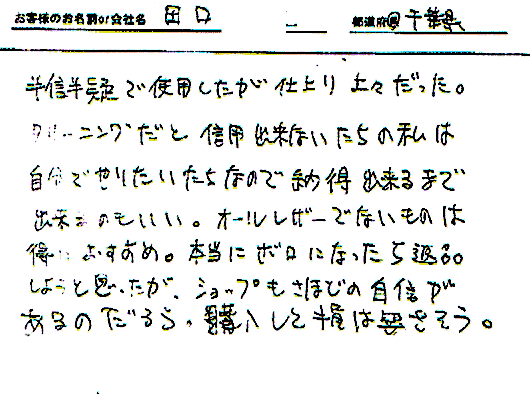 お客様のお名前or会社名 田口 都道府県 千葉県
半信半疑で使用したが仕上り上々だった。
クリーニングだと信用出来ないたちの私は
自分でやりたいたちなので納得出来るまで
出来るのもいい。オールレザーでないものは
得におすすめ。本当にボロになったら返品
しようと思ったが、ショップもさほどの自信が
あるのだろう、購入して損は無さそう。